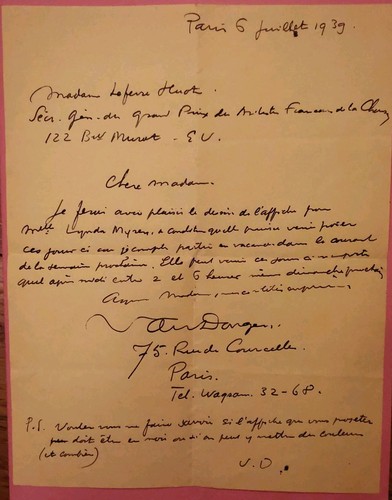 Paris 6 juillet 1939.
Madame Lefevre Huot.
Secr. Gén. du Grand Prix des Artistes Français de la Chans
122 Bd Murat - E.V.
Chere Madame.
Je ferai avec plaisir le dessin de l'affiche pour
Melle Lynda Myres, a condition qu'elle puisse venir poser
ces jours ci car je compte partir en vacances dans le courant
de la semaine prochaine. Elle peut venir ces jours ci n'importe
quel après midi entre 2 et 6 heures même dimanche prochain
Madame,
Van Dongen.
75. Rue de Courcelles.
Paris.
Tel. Wagram. 32-68.
P.S. Voulez vous me faire savoir si l'affiche que vous projetez
doit être en noir ou si on peut y mettre des couleurs
(et combien)
V.D.